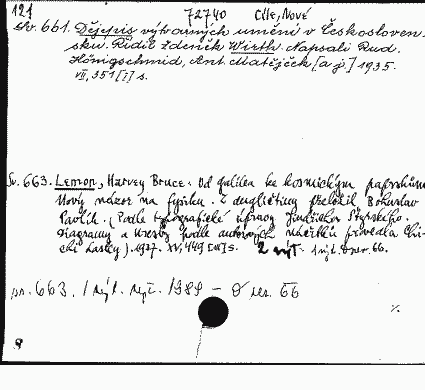 121 72740 Cite, Nové
Sv. 661. Dějepis výtvarných umění v Českosloven-
sku. Řídil Zdeněk Wirth. Napsali Rud.
Hönigschmid, Ant. Matějček [a j.] 1935.
VII, 351 [I] s.
Sv. 663. Lemon, Harvey Brace: Od Galilea ke kosmickým paprskům
Nový názor na fysiku. Z angličtiny přeložil Bohuslav
Pavlík. (Podle typografické úpravy Jindřicha Štyrského.
Diagramy a kresby podle autorových náčrtků provedla Chi-
chi Lasley). 1937. XV, 449 s. 2 výt.
sv. 663. 1 výt. 1989 - 66